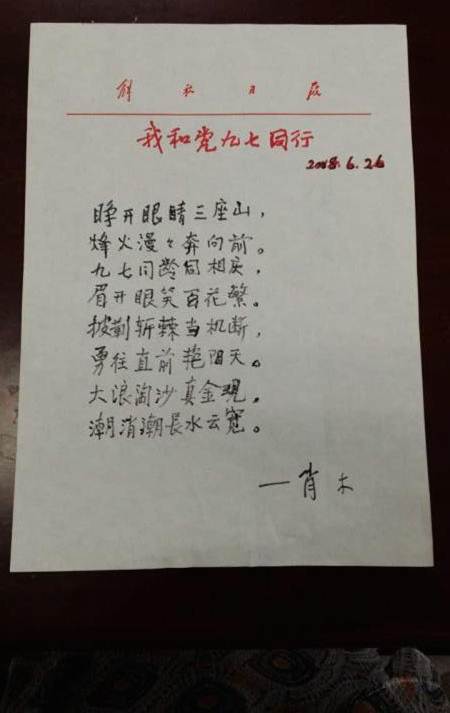 解放日报
我和党九七同行
2018.6.26
睁开眼睛三座山，
烽火漫々奔向前。
九七同龄同相庆，
眉开眼笑百花繁。
披荆斩棘当机断，
勇往直前艳阳天。
大浪淘沙真金现，
潮消潮長水云宽。
—肖木